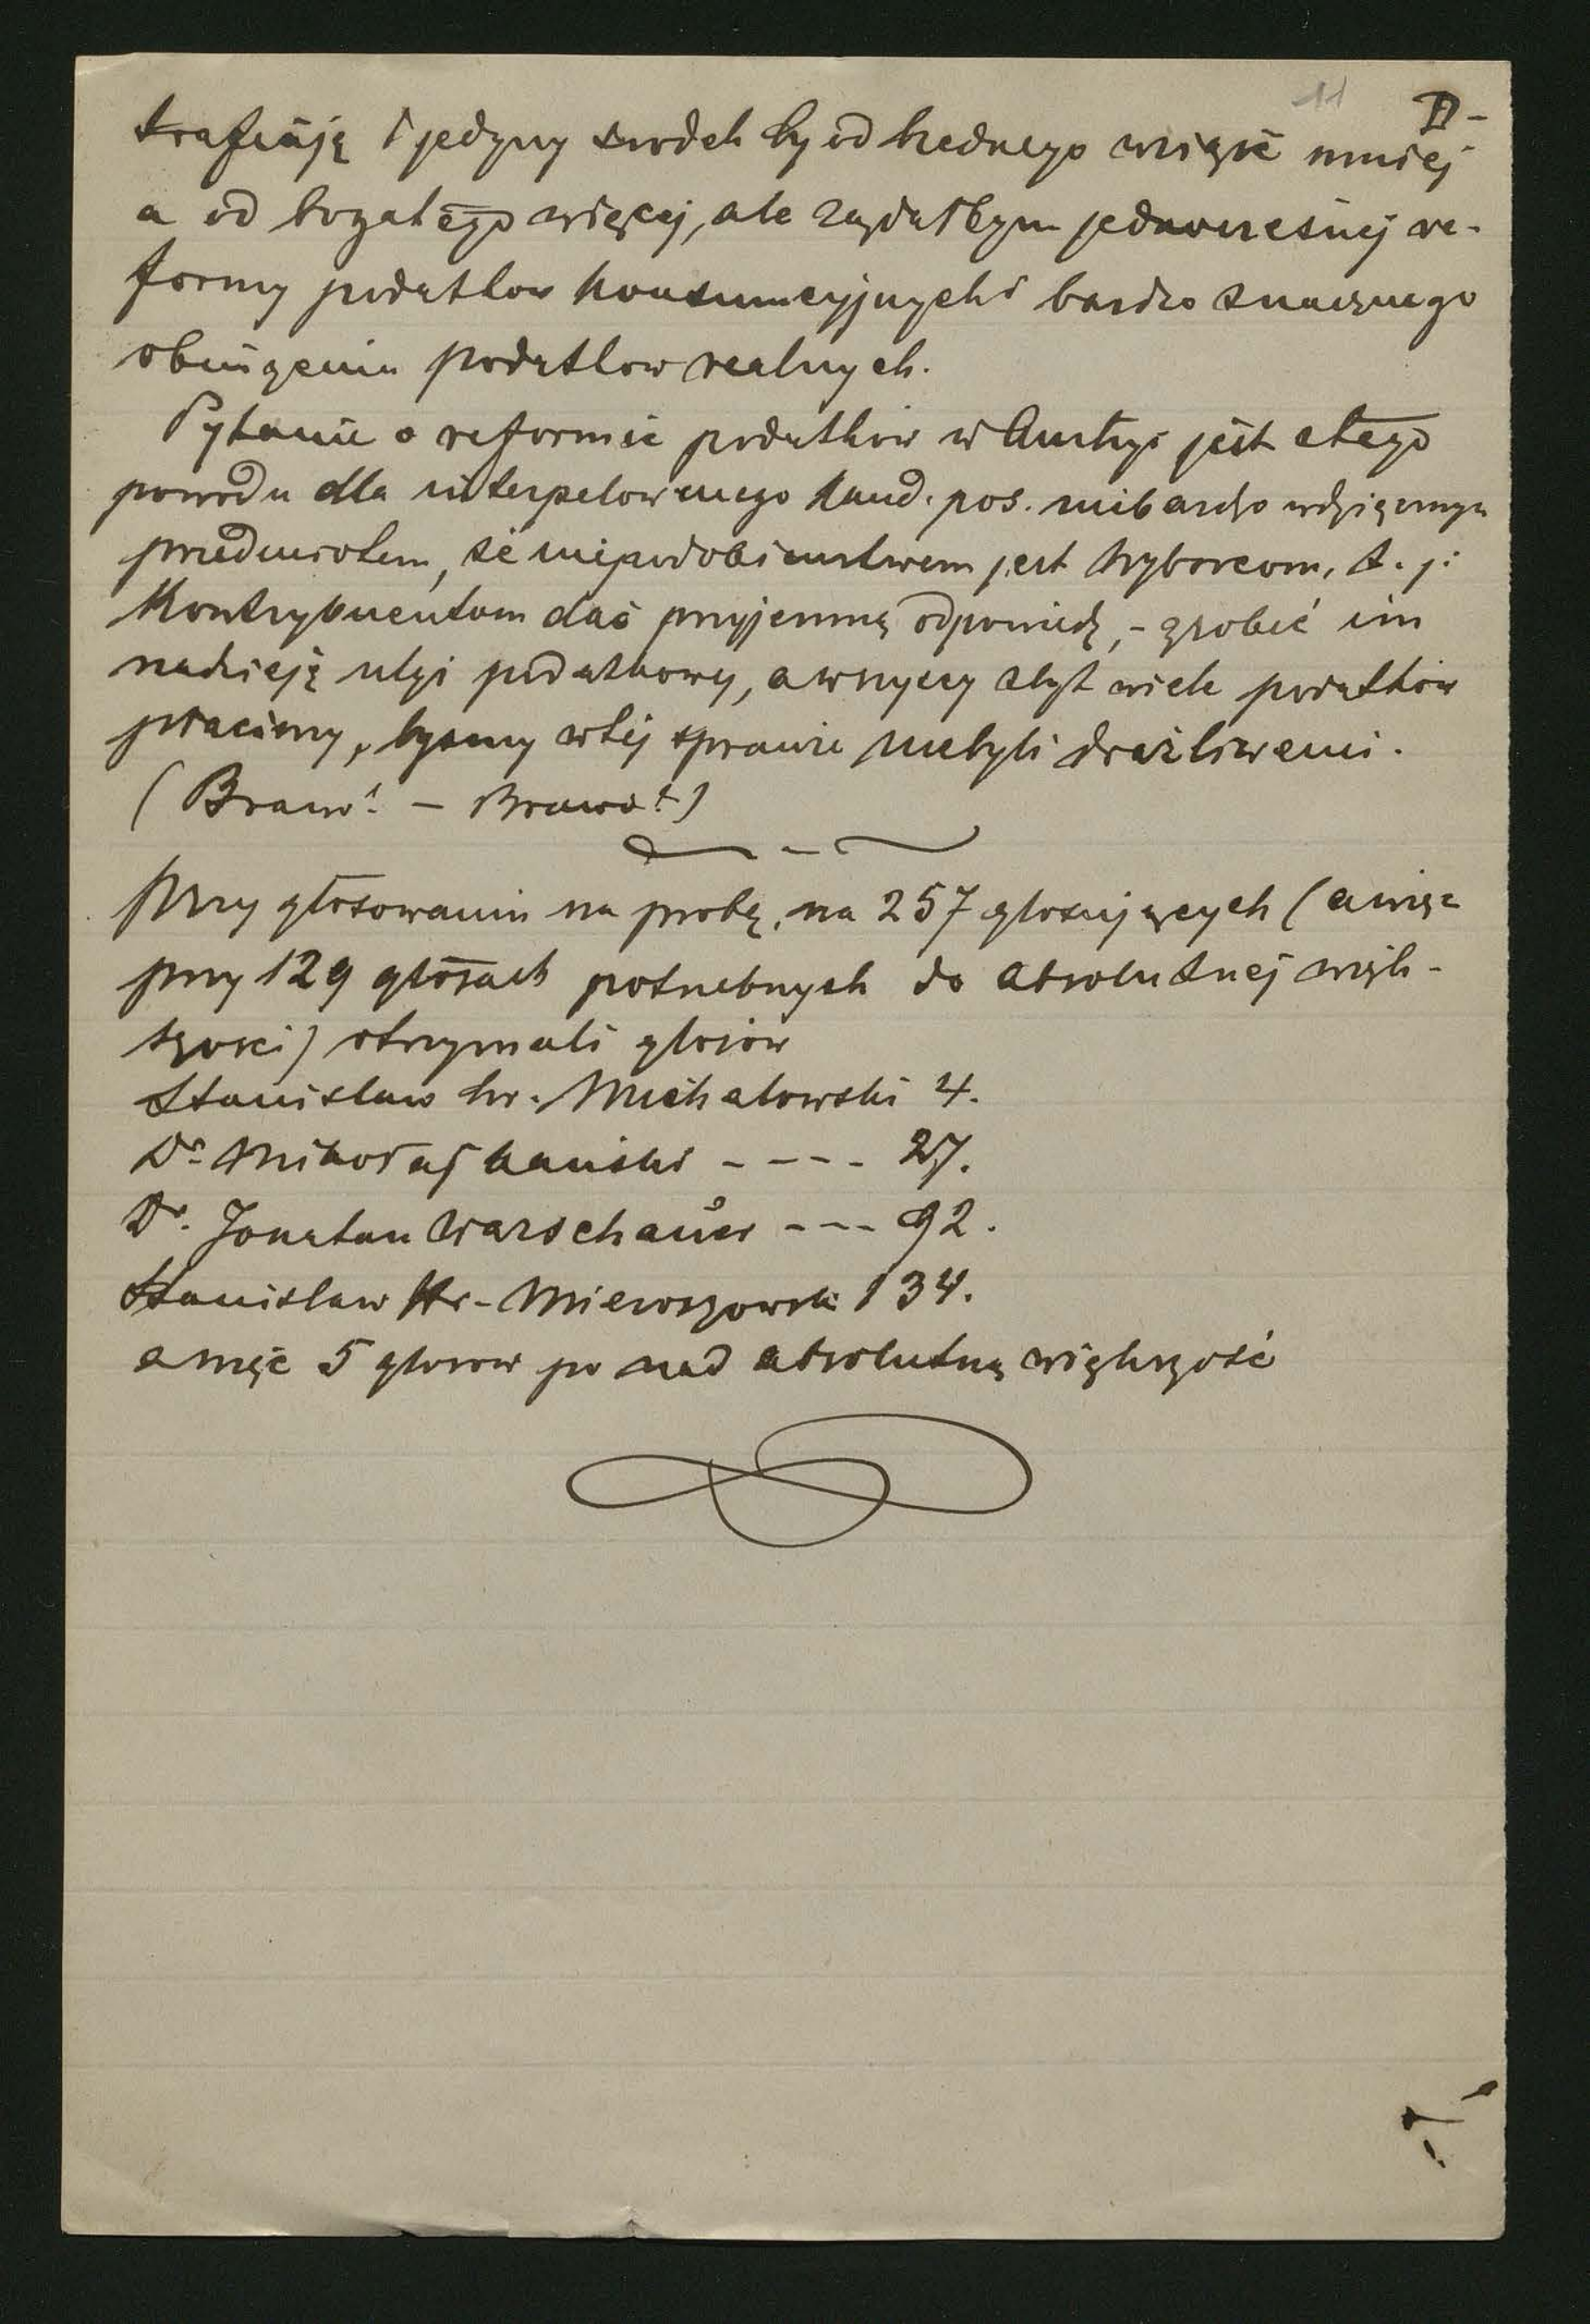 11 D-
trafiają i jedyny środek by od biednego wziąść mniej
a od bogatego więcej, ale rządałbym jednoczesnej re-
formy podatkow konsumcyjnych i bardzo znacznego
obniżenia podatkow realnych.
Pytanie o reformie podatków w Austryi jest z tego
powodu dla interpelowanego kand. pos. niebardzo wdzięcznym
przedmiotem, że niepodobieństwem jest wyborcom, t. j:
Kontrybuentom dać przyjemną odpowiedź, - zrobić im
nadzieję ulgi podatkowej, a wszyscy zbyt wiele podatków
płacimy, byśmy w tej sprawie niebyli drażliwemi.
(Brawo! - Brawo!)
Przy głosowaniu na probę, na 257 głosujących (a więc
przy 129 głosach potrzebnych do absolutnej więk-
szości) otrzymali głosów
Stanisław hr. Michałowski 4.
Dr. Mikołaj Kański ---- 27.
Dr. Jonatan Warschauer --- 92.
Stanisław Hr- Mieroszowski 134.
a więc 5 głosow po nad absolutną większość